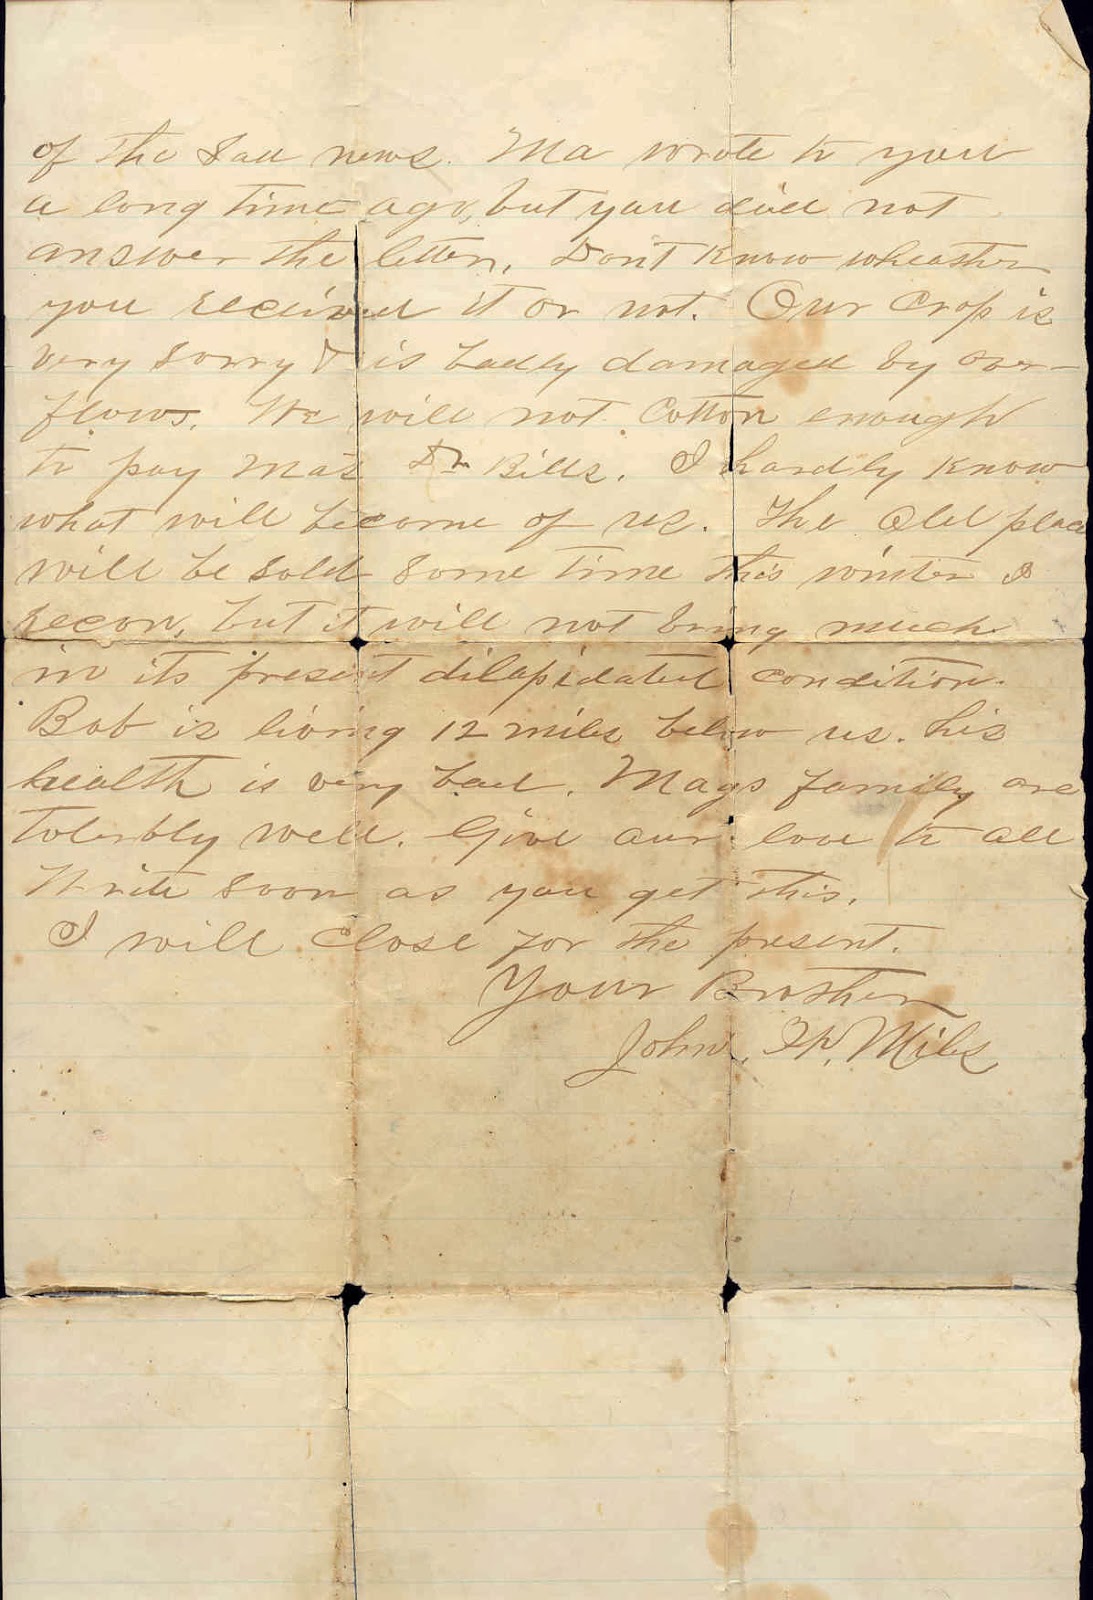 of the Sad news. Ma wrote to you
a long time ago, but you did not
answer the letter. Don't Know wheather
you received it or not. Our Crop is
very Sorry & is badly damaged by over-
flows. We will not Cotton enough
to pay Ma's Dr Bills. I hardly Know
what will become of us. The Old place
will be Sold Some time this winter I
recon, but it will not bring much
in its present dilapidated condition.
Bob is living 12 miles below us. his
health is very bad. Mags family are
tolerbly well. Give our love to all
Write Soon as you get this.
I will close for the present.
Your Brother
John. W. Miles